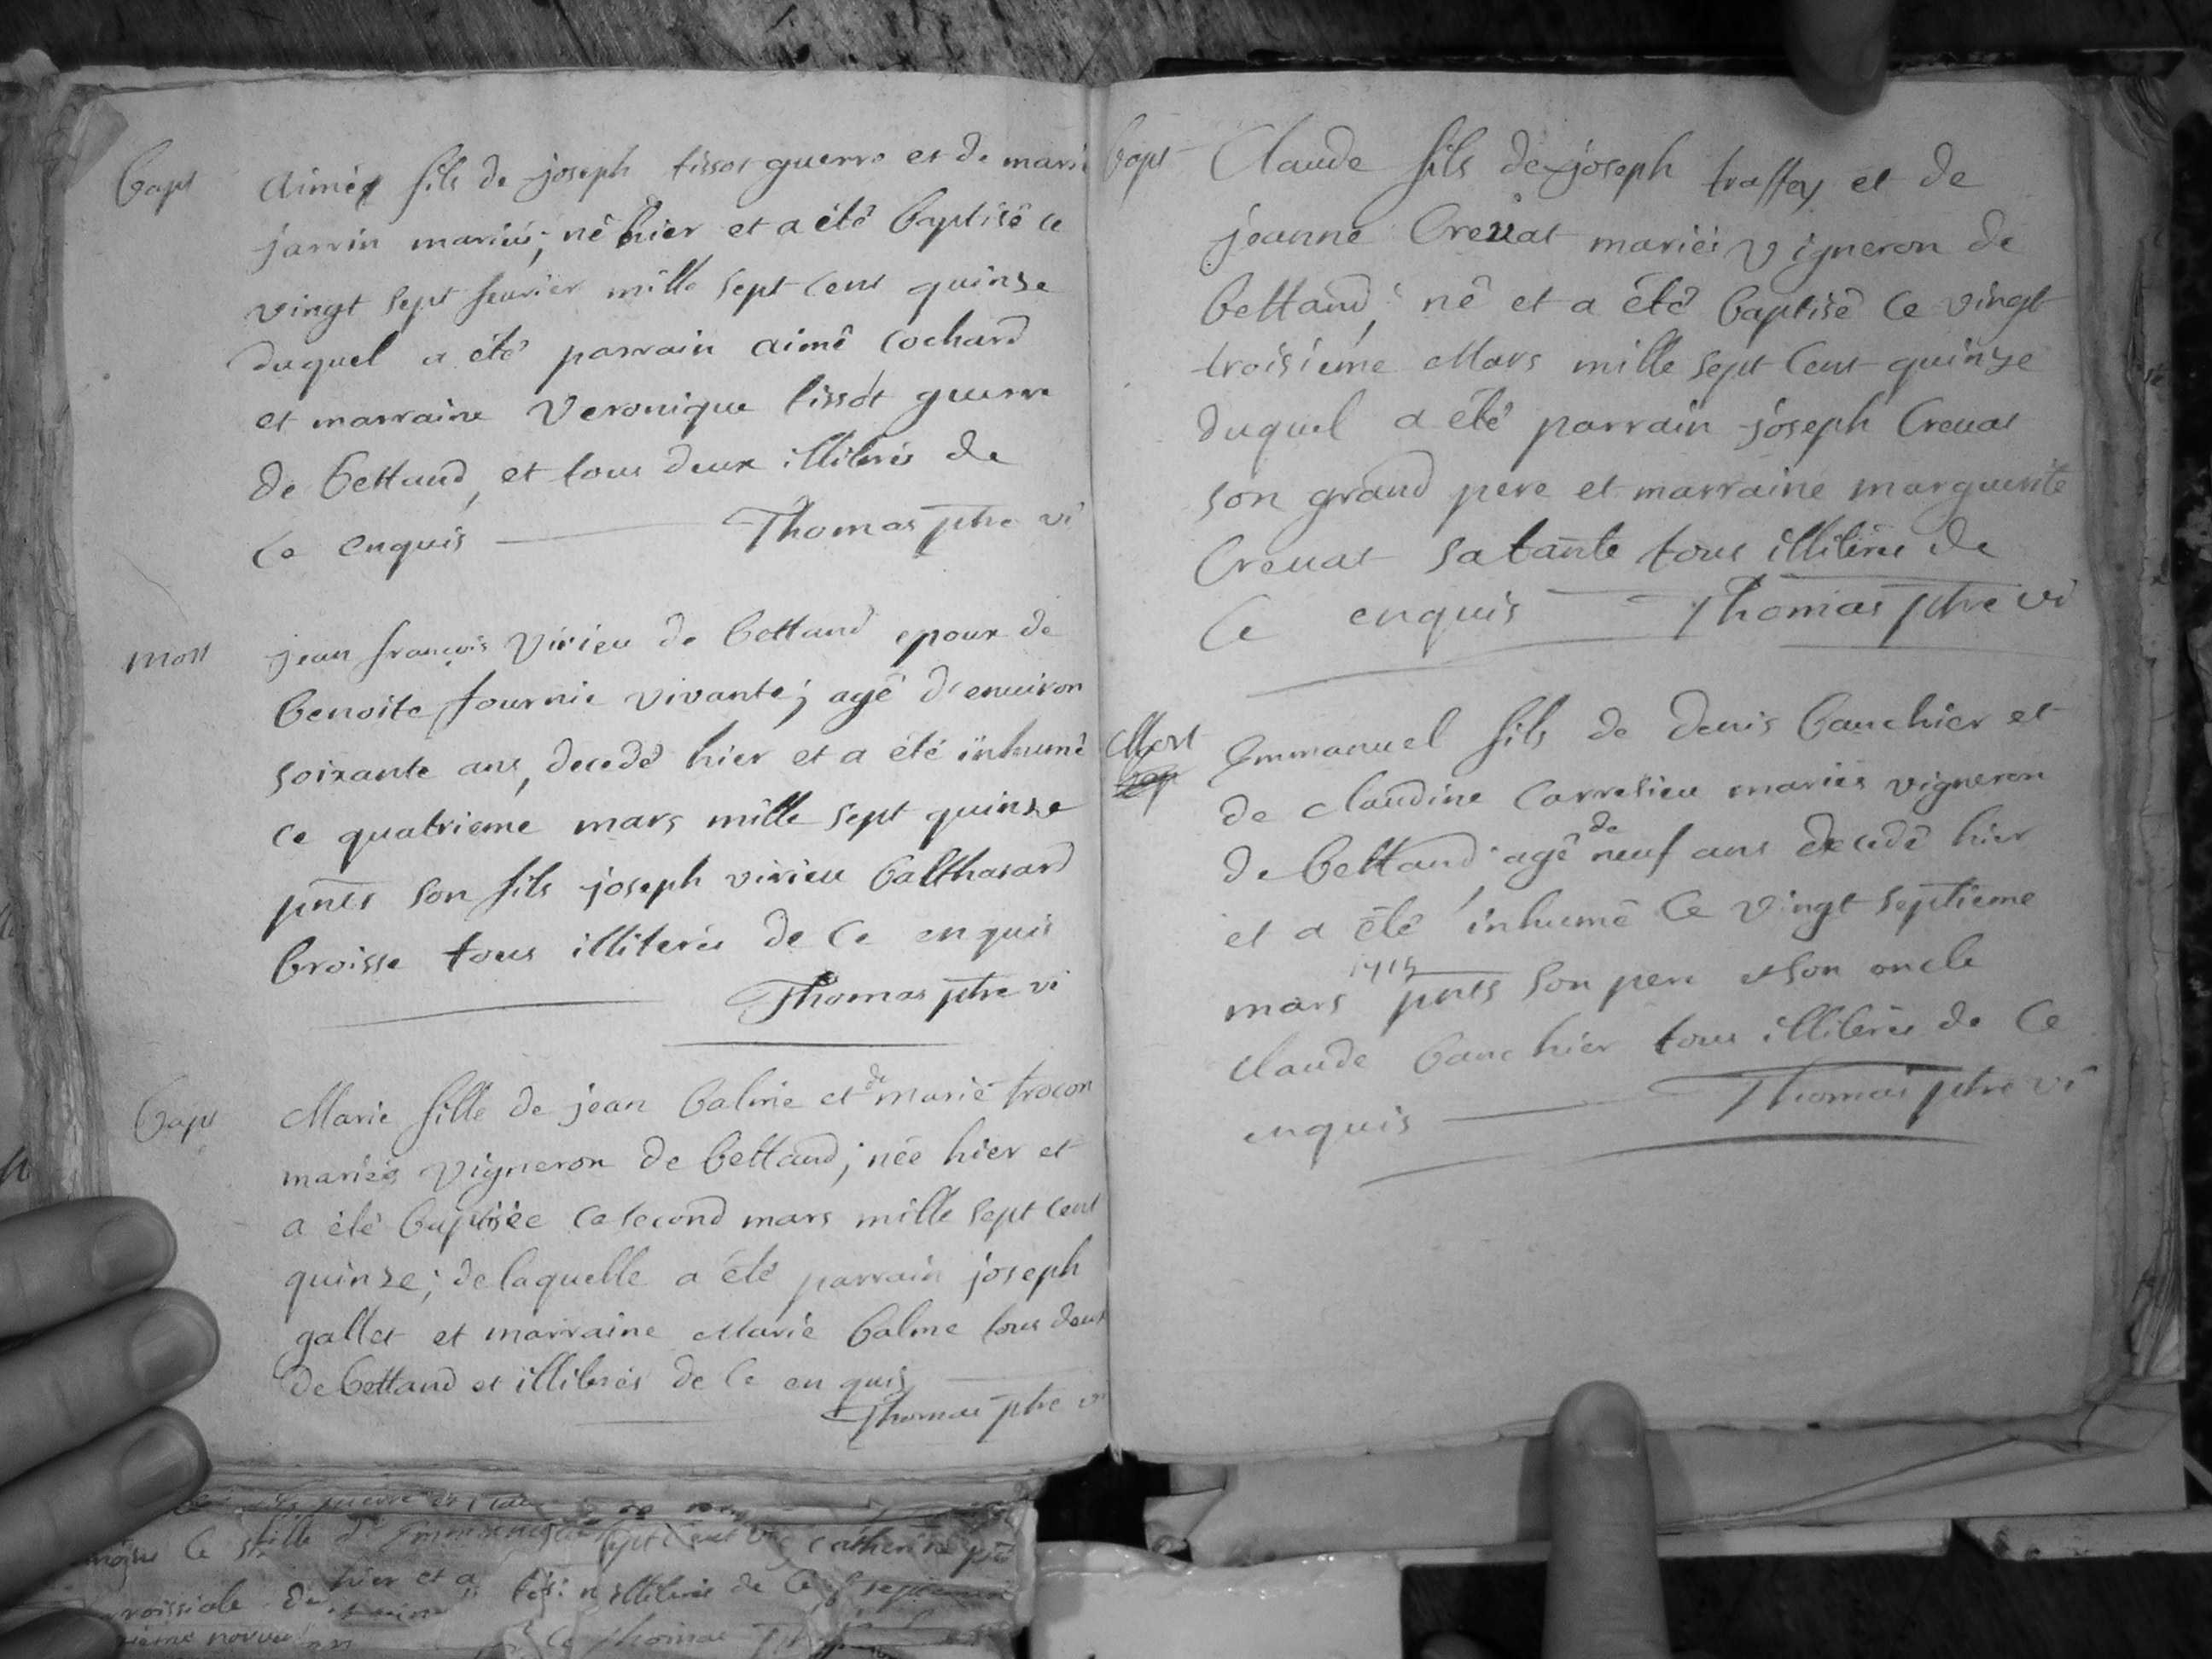 bapt Aimé fils de joseph tissot guerre et de marie
jarrin mariés; né hier et a été baptisé ce
vingt sept feurier mille sept cent quinze
duquel a été parrain aimé cochard
et marraine Veronique tissot guerre
de bettand, et tous deux illiterés de
ce enquis Thomas ptre vi
mort jean françois Virieu de bettand epoux de
benoite fournie vivante; agé d'enuiron
soixante ans, decedé hier et a été inhumé
ce quatrieme mars mille sept quinze
pnts son fils joseph virieu balthasard
broisse tous illiterés de ce enquis
Thomas ptre vi
bapt Marie fille de jean balme et de marie trocon
mariés vigneron de bettand; née hier et
a été baptisée ce second mars mille sept cent
quinze; de laquelle a été parrain joseph
gallet et marraine Marie balme tous deux
de bettand et illiterés de ce enquis
Thomas ptre vi
bapt Claude fils de joseph traffay et de
jeanne Creuat mariés vigneron de
bettand; né et a été baptisé ce vingt
troisieme Mars mille sept cent quinze
duquel a été parrain joseph Creuat
son grand pere et marraine marguerite
Creuat sa tante tous illiterés de
ce enquis Thomas ptre vi
Mort Emmanuel fils de denis bauchier et
bap de claudine Carresieu mariés vigneron
de bettand agé de neuf ans decedé hier
et a été inhumé ce vingt septieme
mars 1715 pnts son pere et son oncle
claude bauchier tous illiterés de ce
enquis Thomas ptre vi